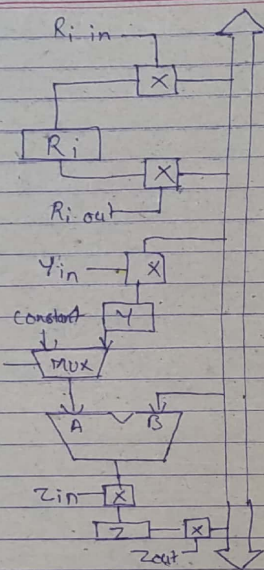 Ri in
X
Ri
X
Ri out
Yin
X
constant
Y
MUX
A
B
Zin
X
Z
X
Zout